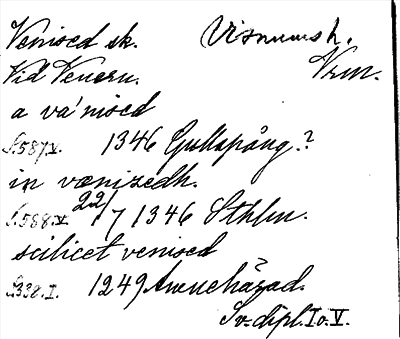 Venised sk. Visnums h.
Vid Venern. Vrm.
a va'nised
S. 587 V. 1346 Gullspång.?
in vænizedh.
S. 588. V 22/7 1346 Sthlm.
scilicet venised
S. 338. I. 1249
Sv. dipl. I o. V.